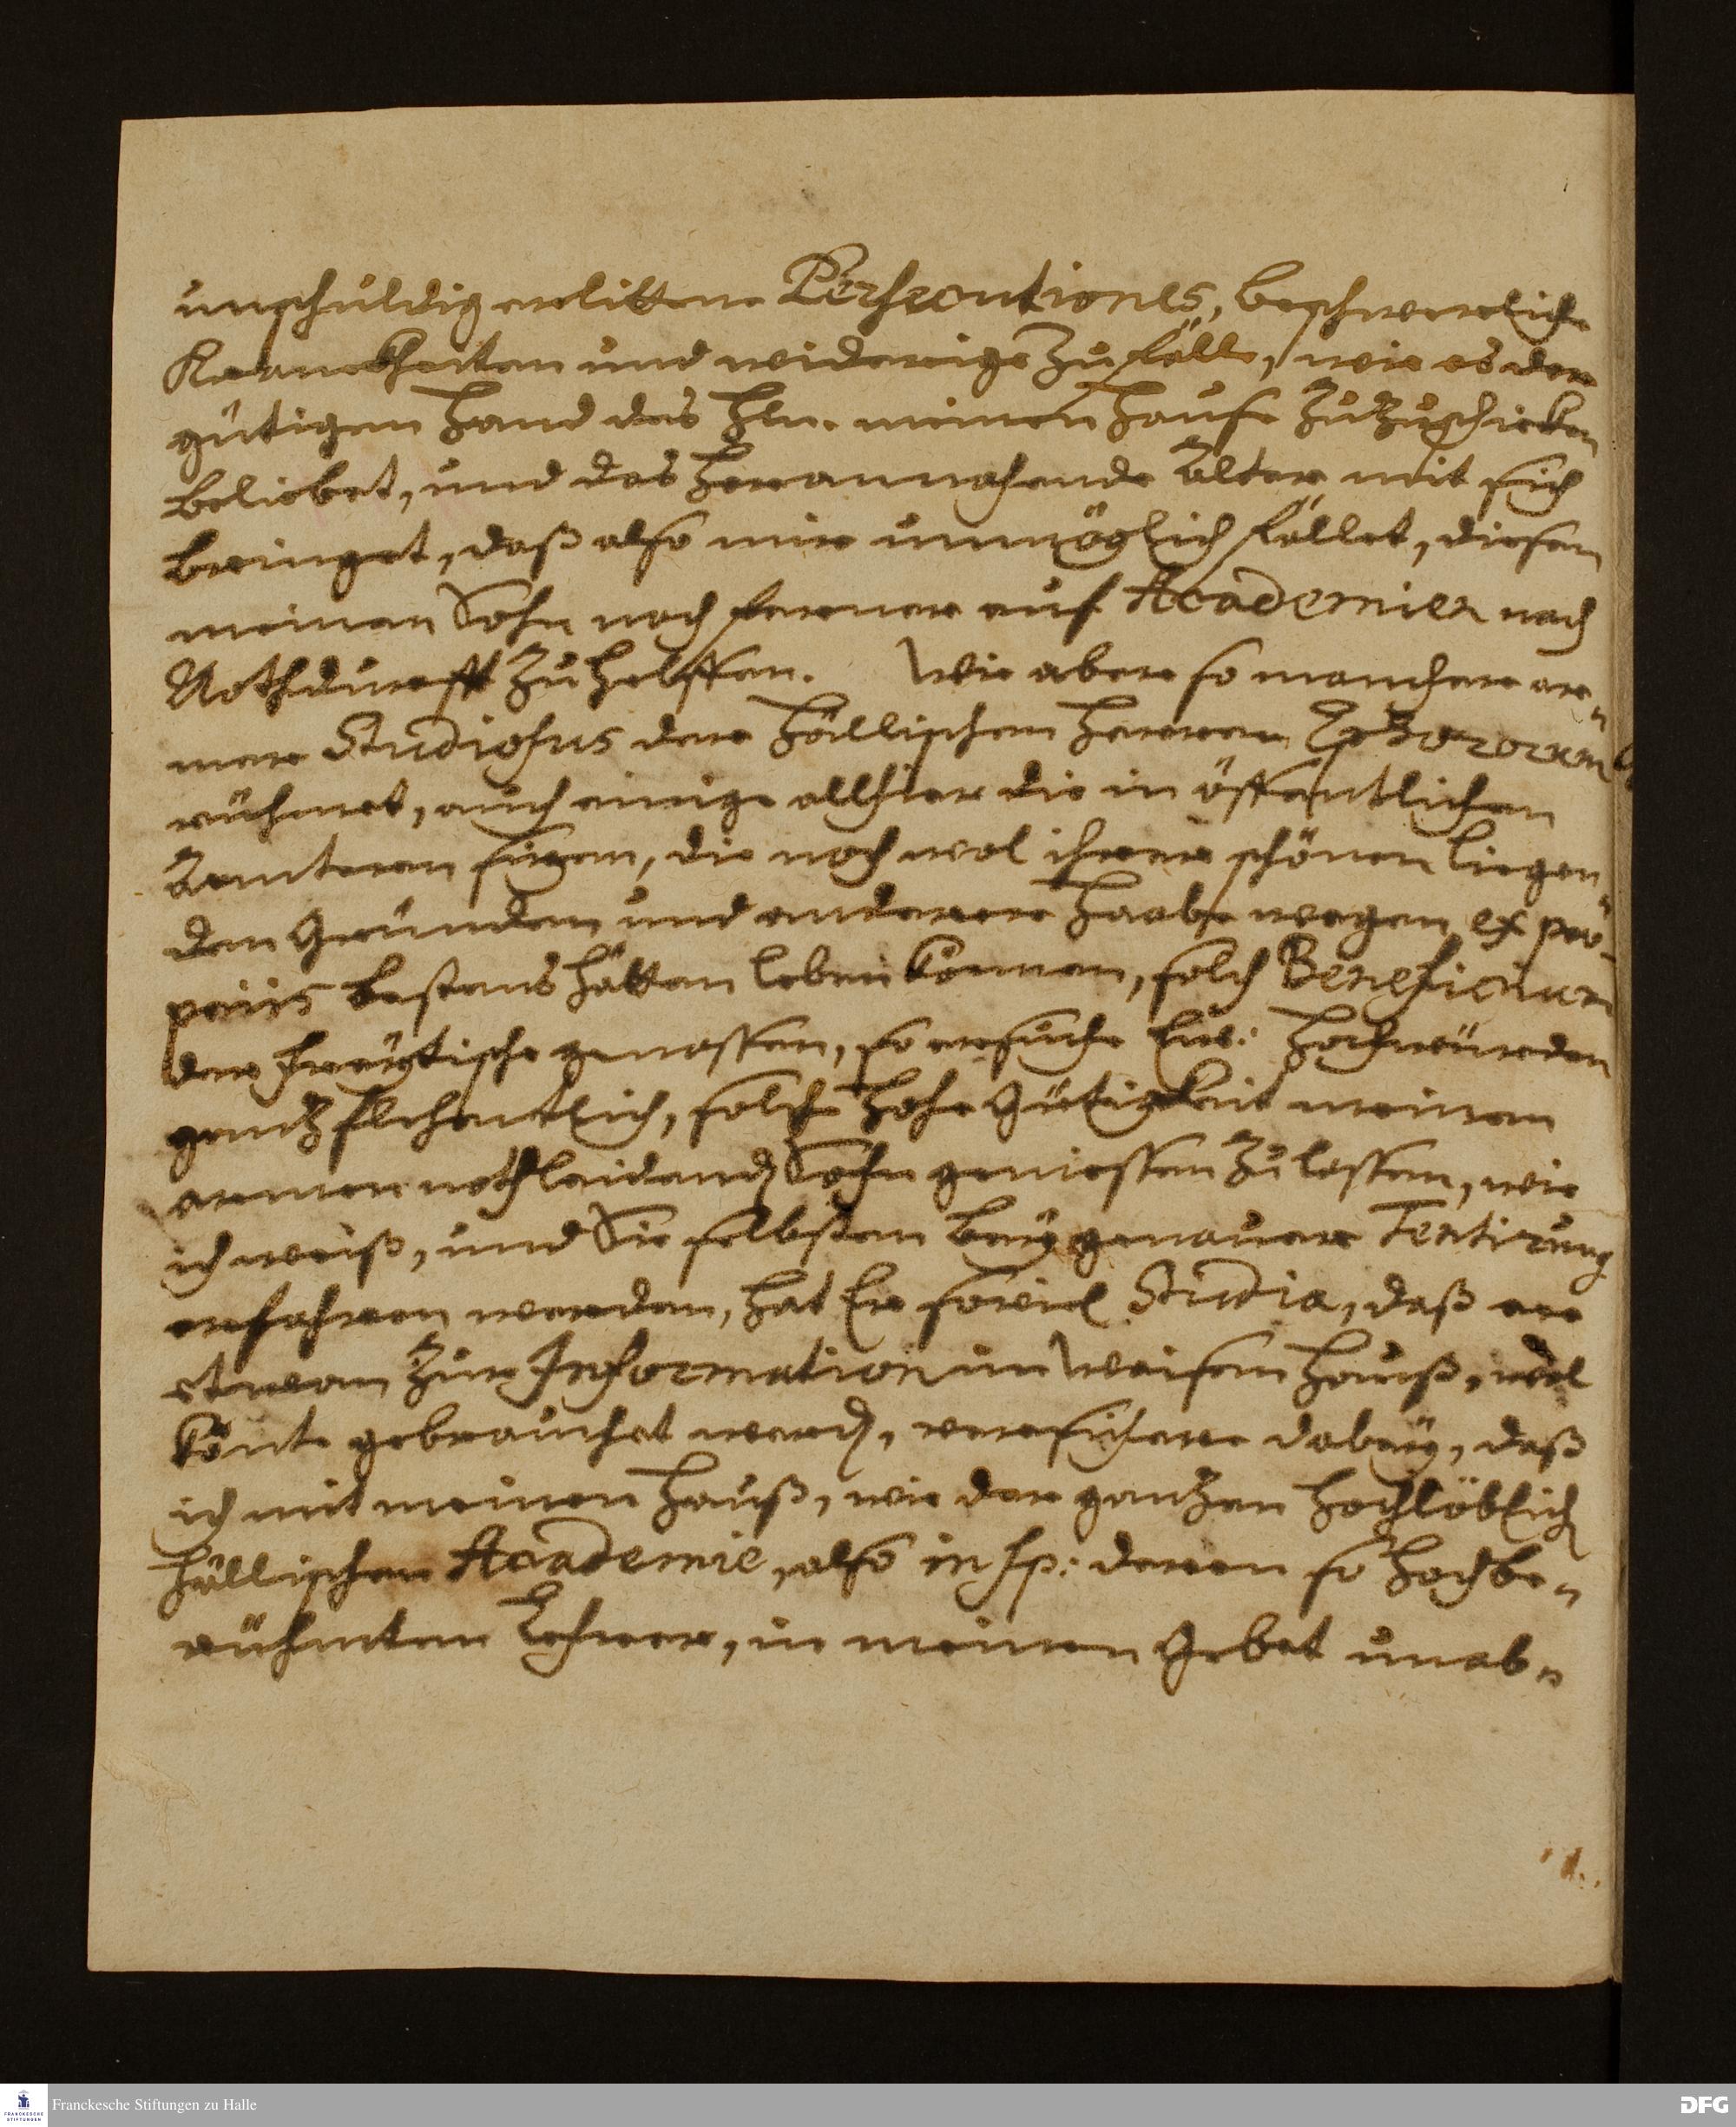 unschuldig erlittene Persecutiones, beschwerliche
Kranckheiten und widerige Zufälle, wie es der
gütigen Hand des Hln. meinen Hause zuzuschicken
beliebet, und das herannahende Alter mit sich
bringet, daß also mir unmöglich fället, diesen
meinen Sohn noch ferner auf Academien nach
Nothdurfft zu helffen. Wie aber so mancher ar„
mer Studiosus der Hällischen Herren
rühmet, auch einige allhier die in öffentlichen
Aemtern sitzen, die noch wol ihrer schönen liegen„
den Gründen und anderer Haabe wegen ex pro„
priis bestens hätten leben können, solch Beneficium
der Freytische genossen, so ersuche Ew. Hochwürden
gantz flehentlich, solche hohe Gütigkeit meinen
armen nothleidend Sohn geniessen zu lassen, wie
ich weiß, und Sie selbsten bey genauer Tentirung
erfahren werden, hat Er soviel Studia, daß er
etwan zur Information im Waisen Hauß, wol
könte gebrauchet werd, versichere dabey, daß
ich mit meinen Hauß, wie der gantzen Hochlöblich
Hällischen Academie, also insp: deren so hochbe„
rühmten Lehrer, in meinen Gebet unab„
Franckesche Stiftungen zu Halle
DFG